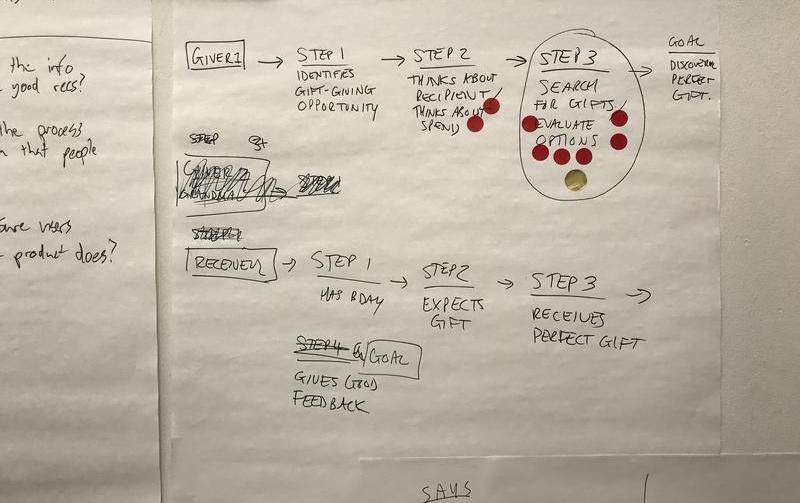 the info
good recs?
the process
that people
users
product does?
GIVER 1
STEP 1
IDENTIFIES
GIFT-GIVING
OPPORTUNITY
STEP 2
THINKS ABOUT
RECIPIENT /
THINKS ABOUT
SPEND
STEP 3
SEARCH
FOR GIFTS /
EVALUATE
OPTIONS
GOAL
DISCOVER
PERFECT
GIFT.
STEP
RECEIVER
STEP 1
HAS BDAY
STEP 2
EXPECTS
GIFT
STEP 3
RECEIVES
PERFECT GIFT
STEP 4
GOAL
GIVES GOOD
FEEDBACK
SAYS